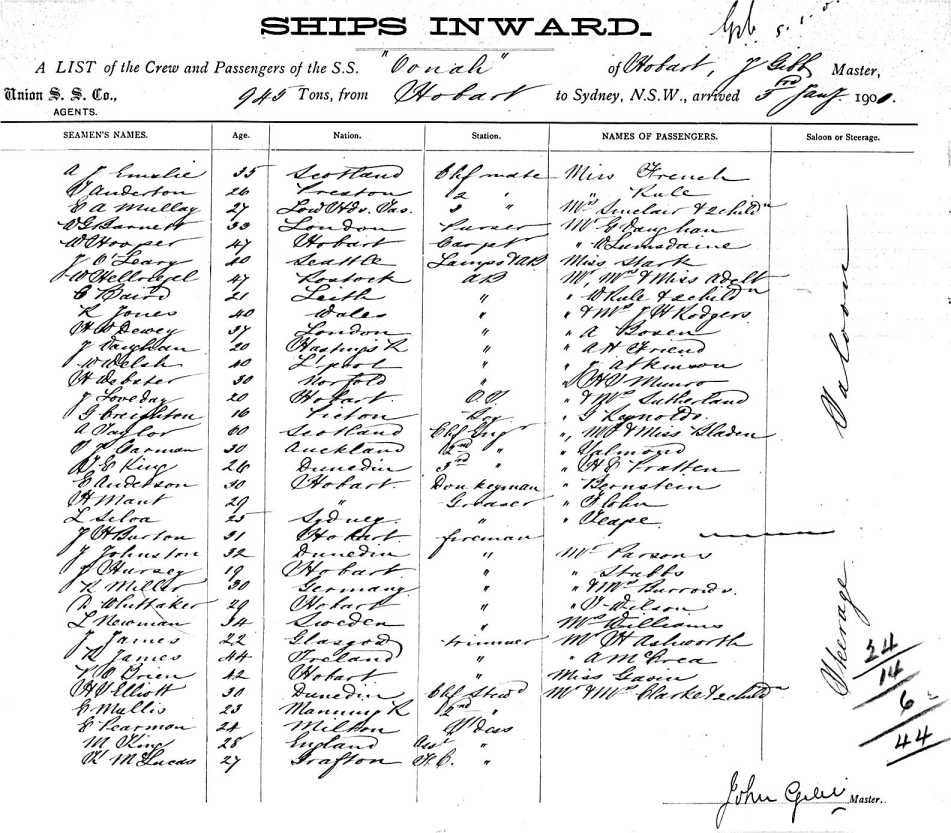 SHIPS INWARD.
A LIST of the Crew and Passengers of the S.S. "Oonah" of Hobart, J Gibb Master,
Union S. S. Co., 945 Tons, from Hobart to Sydney, N.S.W., arrived 3rd Jany. 1901.
AGENTS.
SEAMEN'S NAMES. Age. Nation. Station. NAMES OF PASSENGERS. Saloon or Steerage.
A J Emslie 35 Scotland Chf mate Miss French
Anderton 26 Preston 2 " " Rule
E A Mullay 27 Low Hds. Tas. 3 " Mrs Sinclair & 2 childn
W G Barnett 33 London Purser Mr E Vaughan
W Hooper 47 Hobart Carptr " W Lumsdaine
J O'Leary 40 Seattle Lamps & AB Miss Stark
W Hellvogel 47 Rostock AB Mr, Mrs & Miss Adelt
C Baird 21 Leith " " W Rule & 2 childn
R Jones 40 Wales " " & Mrs J H Rodgers
H W Dewey 37 London " " A Boxen
J Vaughan 20 Hastings R " " A H Friend
W Welsh 40 L'pool " " J Atkinson
H Webster 30 Norfold " " H S Munro
J Loveday 20 Hobart. O.S. " & Mrs Sutherland
G Creighton 16 Picton Boy " Reynolds.
A Taylor 60 Scotland Chf Engr " Mr & Miss Bladen
Carman 30 Auckland 2nd " " Yalmond
King 26 Dunedin 3rd " " H E Pratten
E Anderson 30 Hobart. Donkeyman " Bernstein
H Mant 29 " Greaser " Flohn
L Silva 25 Sydney. " " Teape.
J H Burton 31 Hobart fireman
J Johnston 32 Dunedin " Mr Parsons
J Hursey 19 Hobart " " Stabbs
R Miller 30 Germany. " " & Mrs Burrows.
Whittaker 29 Hobart " " Wilson
L Newman 34 Sweden " Mrs Williams
J James 22 Glasgow trimmer Mr H Ashworth
R James 44 Ireland " " A McCrea
O'Brien 42 Hobart " Miss Gavin
H V Elliott 30 Dunedin Chf Stewd Mr & Mrs Clarke & 2 childn
C Mullis 23 Manning R 2nd "
E Pearmon 24 Milton S'dess
M King 28 England Asst "
McLucas 27 Grafton F.C. "
Saloon
Steerage
24
14
6
44
John Gibb Master.